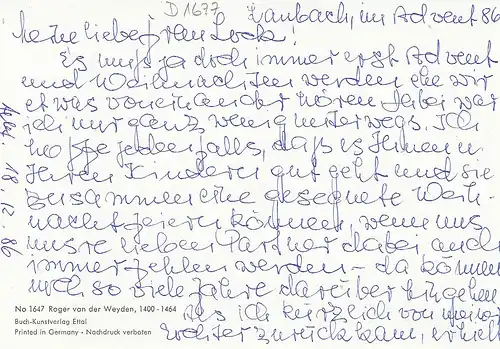 D 1677
Laubach, im Advent 86
Meine liebe Frau Look!
Es muß ja doch immer erst Advent
und Weihnachten werden ehe wir
etwas voneinander hören dabei war
ich nur ganz wenig unterwegs. Ich
hoffe jedenfalls, daß es Ihnen u
Ihren Kindern gut geht und sie
zusammen eine gesegnete Weih-
nacht feiern können, wenn uns
unsre lieben Partner dabei auch
immer fehlen werden - da können
noch so viele Jahre darüber hingehen
Als ich kürzlich von meiner
Tochter zurückkam, erhielt
18.12.86
No 1647 Roger van der Weyden, 1400-1464
Buch-Kunstverlag Ettal
Printed in Germany - Nachdruck verboten